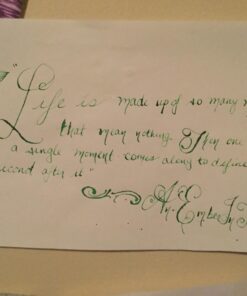 "Life is made up of so many
that mean nothing. Then one
a single moment comes along to define
second after it"
An Ember In